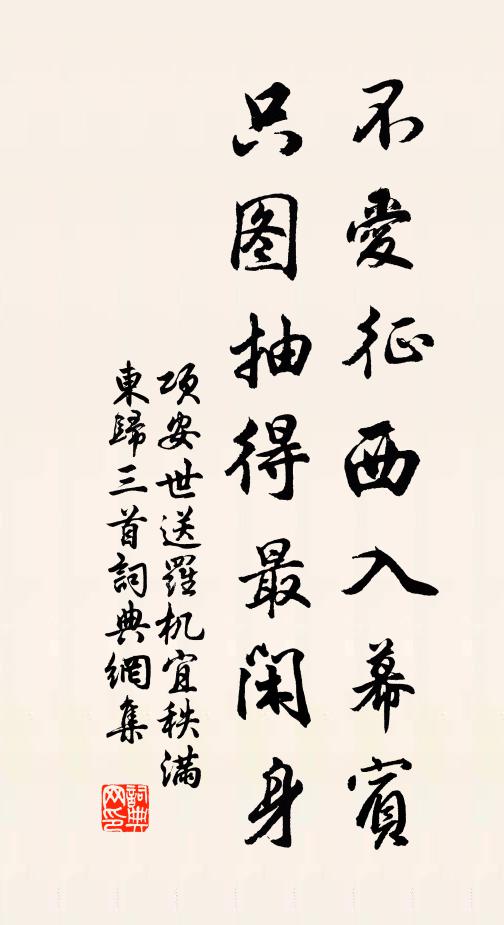 不愛征西入幕賓
只图抽得最闲身
項安世送羅机宜秩滿
東歸三首詞典網集
詞典网印